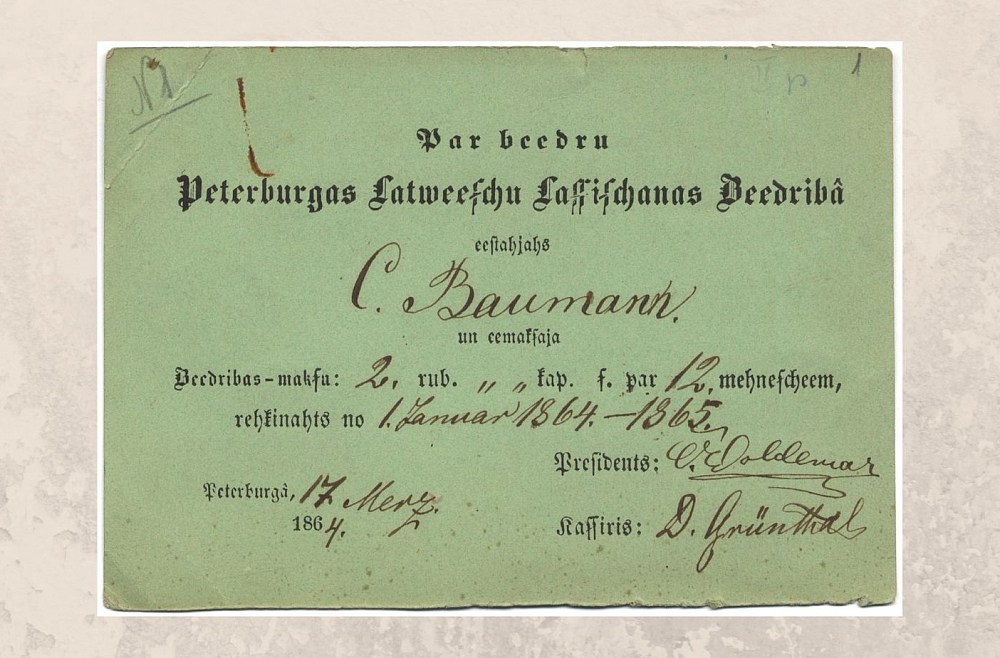 N 1
1
Par beedru
Peterburgas Latweeſchu Laſſiſchanas Beedribâ
eeſtahjahs
C. Baumann.
un eemakſaja
Beedribas-makſu: 2. rub. „ „ kap. ſ. par 12. mehneſcheem,
rehķinahts no 1. Januar 1864. – 1865.
Preſidents: C. Woldemar
Peterburgâ, 17 Merz.
1864.
Kaſſiris: D. Grünthal